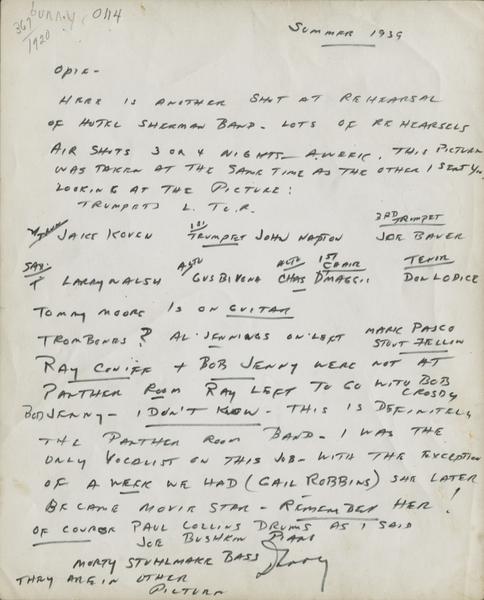 BUNNY 0114
369/1920
SUMMER 1939
OPIE -
HERE IS ANOTHER SHOT AT REHEARSAL
OF HOTEL SHERMAN BAND - LOTS OF REHEARSELS
AIR SHOTS 3 OR 4 NIGHTS - A WEEK. THIS PICTURE
WAS TAKEN AT THE SAME TIME AS THE OTHER I SENT YOU.
LOOKING AT THE PICTURE:
TRUMPETS L. TO R.
JAKE KOVEN 1ST TRUMPET JOHN NAPTON 3RD TRUMPET JOE BAUER
SAX: T LARRY WALSH ALTO GUS BIVONA ALTO 1ST CHAIR CHAS DMAGGII TENIR DON LODICE
TOMMY MOORE IS ON GUITAR
TROMBONES? AL. JENNINGS ON LEFT MARK PASCO
STOUT FELLIW
RAY CONIFF + BOB JENNY WERE NOT AT
PANTHER ROOM RAY LEFT TO GO WITH BOB CROSBY
BOB JENNY - I DON'T KNOW - THIS IS DEFINITELY
THE PANTHER ROOM BAND - I WAS THE
ONLY VOCALIST ON THIS JOB - WITH THE EXCEPTION
OF A WEEK WE HAD (GAIL ROBBINS) SHE LATER
BECAME MOVIE STAR - REMEMBER HER!
OF COURSE PAUL COLLINS DRUMS AS I SAID
JOE BUSHKIN PIANO
MORTY STUHLMAKE BASS
THEY ARE IN OTHER
PICTURE